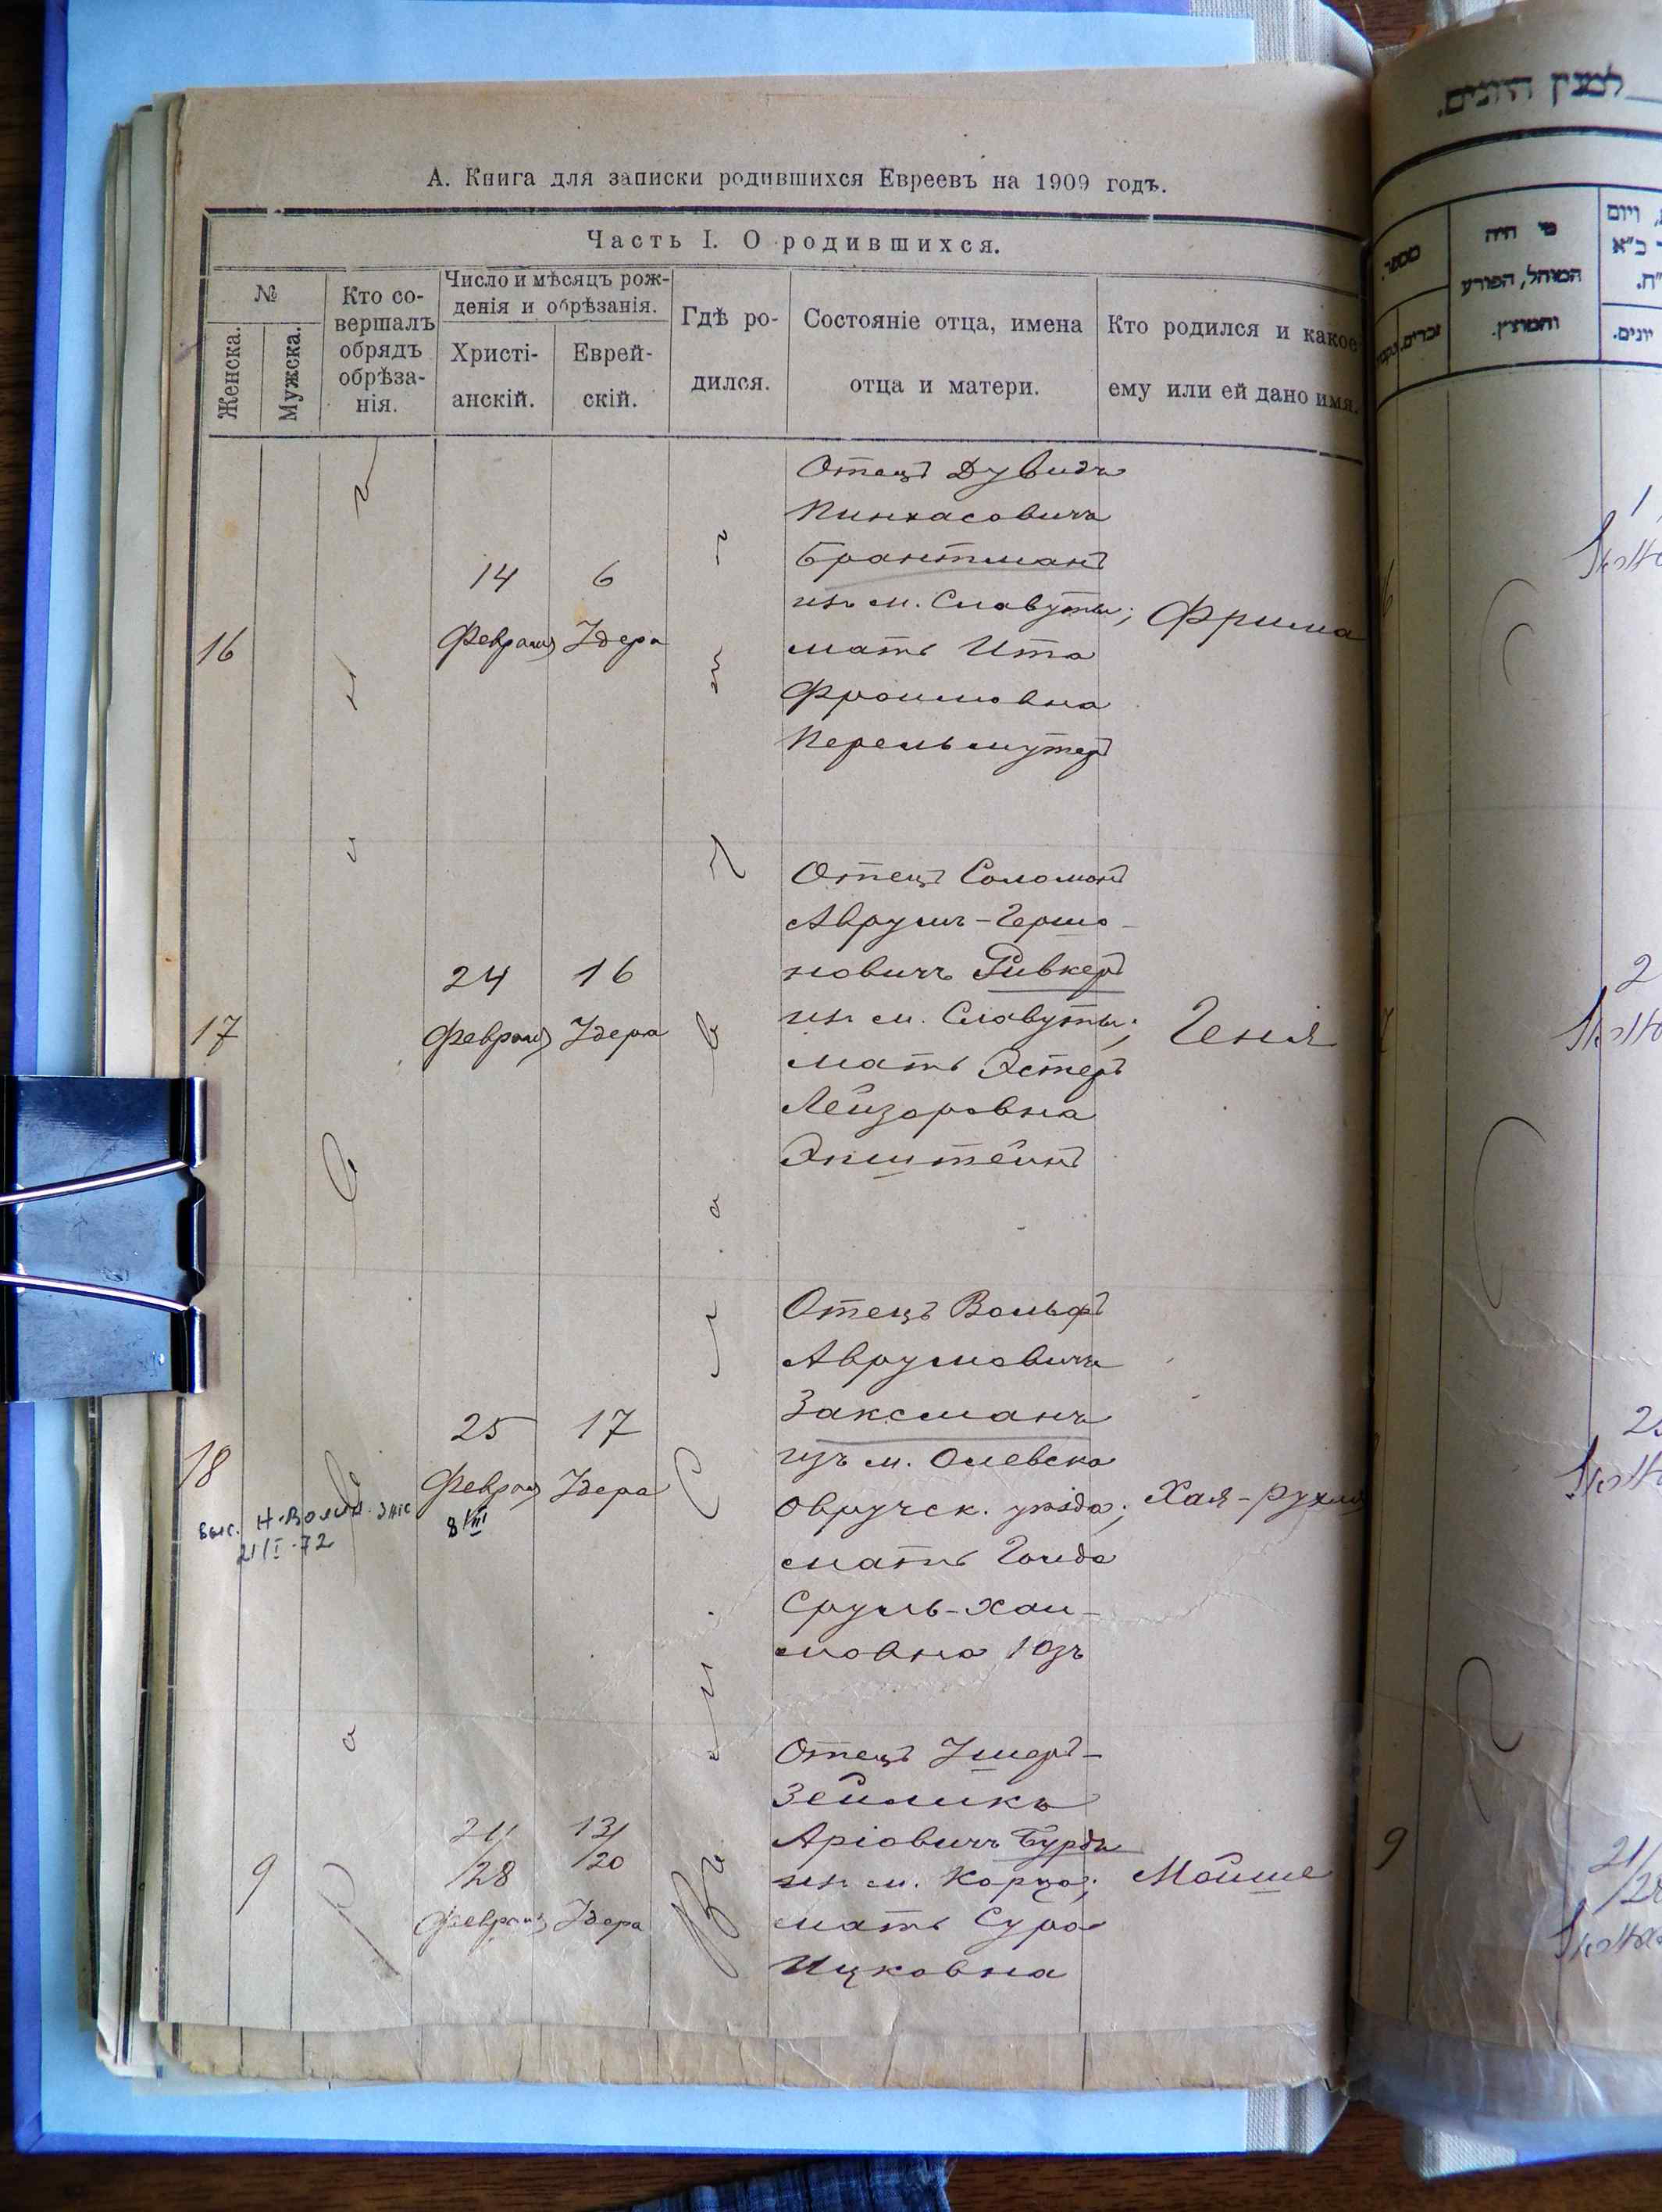 А. Книга для записки родившихся Евреевъ на 1909 годъ.
Часть I. О родившихся.
№
Женска.
Мужска.
Кто со-
вершалъ
обрядъ
обрѣза-
нія.
Число и мѣсяцъ рож-
денія и обрѣзанія.
Христі-
анскій.
Еврей-
скій.
Гдѣ ро-
дился.
Состояніе отца, имена
отца и матери.
Кто родился и какое
ему или ей дано имя.
16
14
Февраля
6
Адера
Отецъ Дувидъ
Пинхасовичъ
Брантманъ
изъ м. Славуты;
мать Ита
Фроимовна
Перельмутеръ
Фрима
17
24
Февраля
16
Адера
Отецъ Соломонъ
Аврумъ-Гершо-
новичъ Ривкеръ
изъ м. Славуты;
мать Эстеръ
Лейзоровна
Эпштейнъ
Геня
18
25
Февраля
8/III
17
Адера
Отецъ Вольфъ
Аврумовичъ
Заксманъ
изъ м. Олевска
Овручск. уѣзда;
мать Голда
Сруль-Хаи-
мовна Юзъ
Хая-Рухля
21/I-72
9
21/
/28
Февраля
13/
/20
Адера
Отецъ Ушеръ-
Зейликъ
Аріовичъ Бурдъ
изъ м. Корца;
мать Сура
Ицковна
Мойше
Въ м. Славутѣ
למנין היונים.
מספר.
זכרים.
מי היה
המוהל, הפורע
והמוצץ.
ויום
יונים.
1
2
9
21/